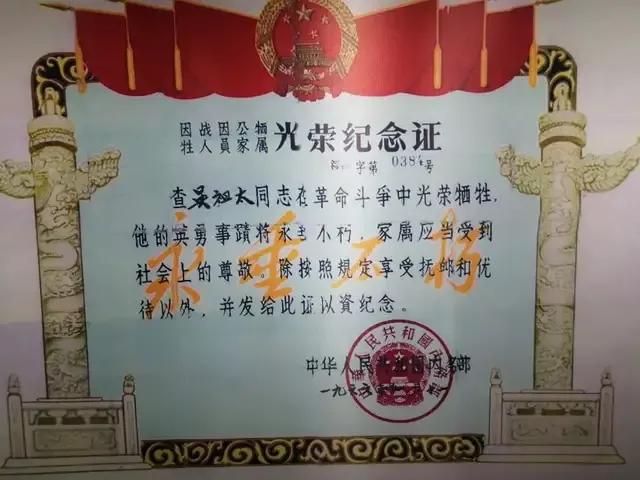 因战因公牺
牲人员家属
光荣纪念证
字第0384号
查吴祖太同志在革命斗爭中光荣牺牲,
他的英勇事蹟将永垂不朽,家属应当受到
社会上的尊敬。除按照規定享受抚邮和优
待以外,并发给此证以資纪念。
永垂不朽
中华人民共和国内务部